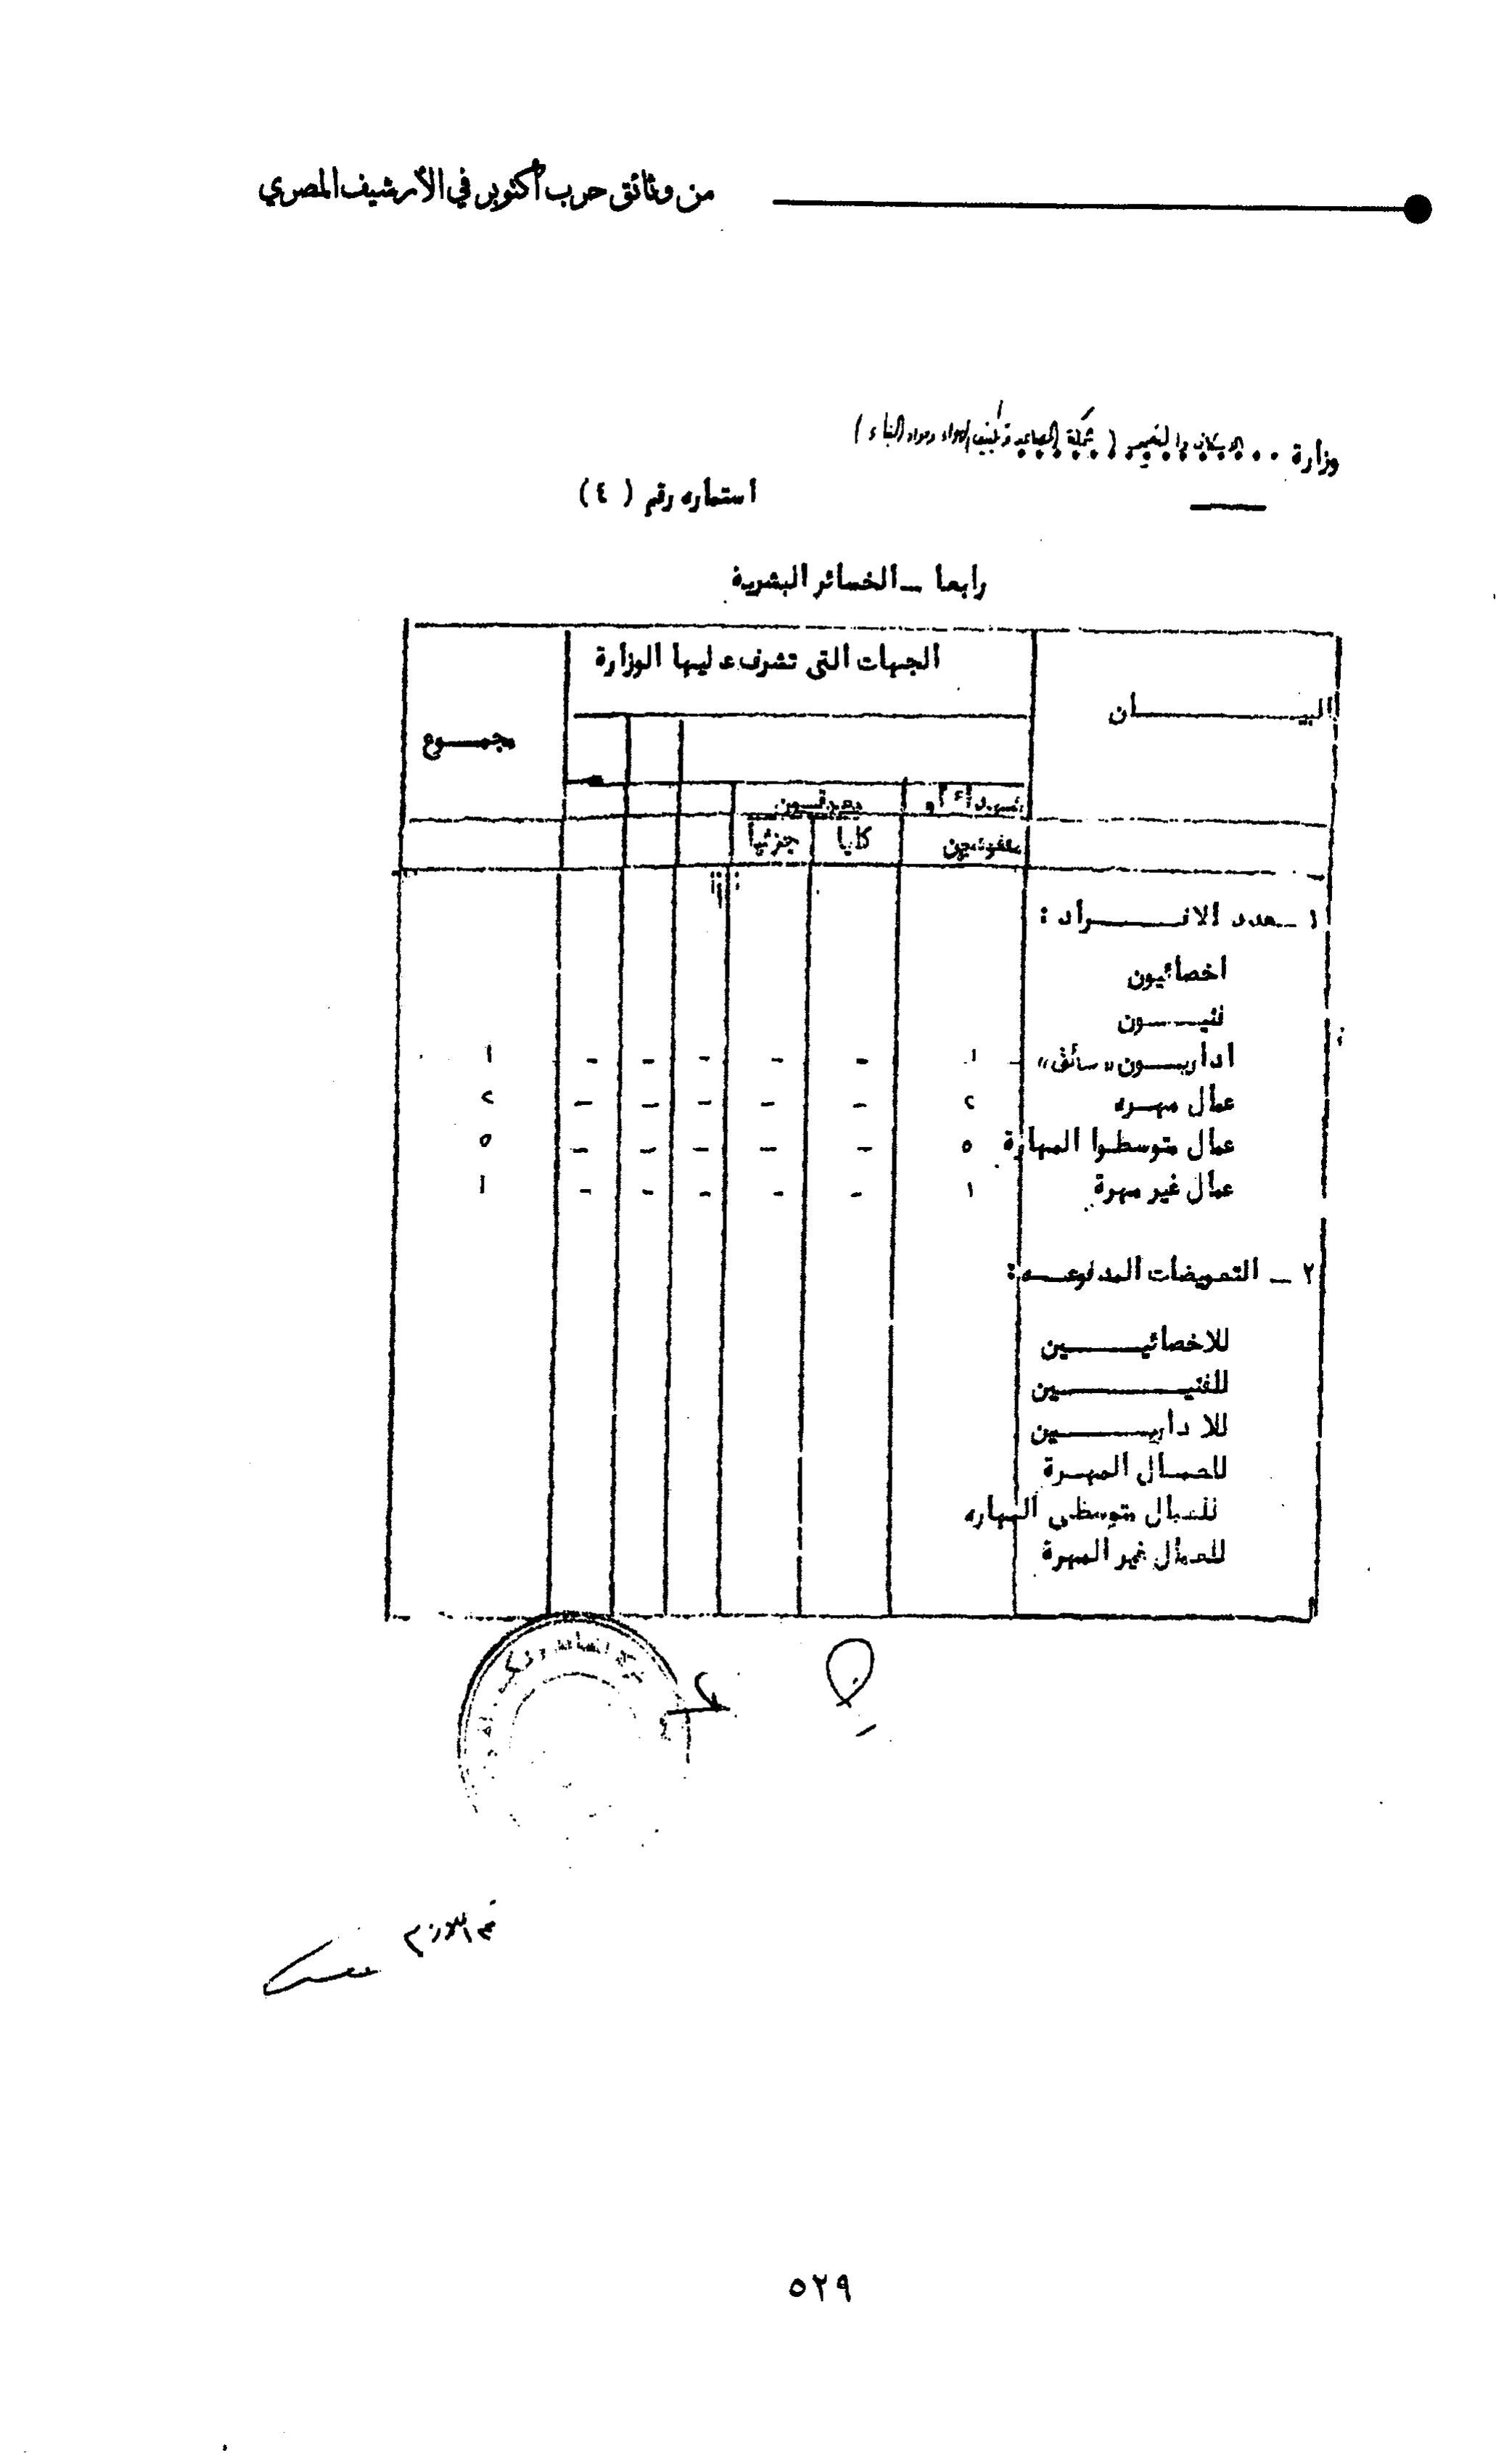 من وثائق حرب أكتوبر في الأرشيف المصري
وزارة الاسكان والتعمير ( شركة المصاعد وتكييف الهواء ومواد البناء )
استماره رقم ( ٤ )
رابعا – الخسائر البشرية
البيــــــان الجهات التى تشرف عليها الوزارة مجمــوع
شهداء أو معوقــون
مفقودين كليا جزئيا
١ – عدد الافــــراد :
اخصائيون
فنيــــون
اداريــون "سائق" ١ - - - - - ١
عمال مهـره ٢ - - - - - ٢
عمال متوسطوا المهارة ٥ - - - - - ٥
عمال غير مهرة ١ - - - - - ١
٢ – التعويضات المدفوعـــه :
للاخصائيـــــين
للفنيــــــين
للاداريـــــين
للعمــال المهــرة
للعمال متوسطى المهاره
للعمال غير المهرة
٥٢٩